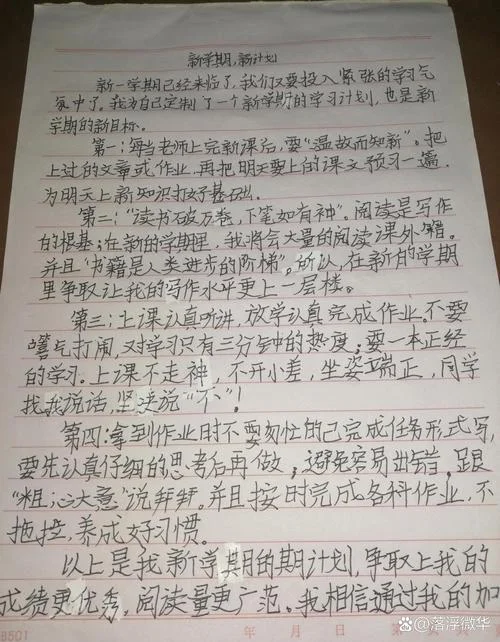 新学期,新计划
新一学期已经来临了,我们又要投入紧张的学习气
氛中了。我为自己定制了一个新学期的学习计划,也是新
学期的新目标。
第一:每当老师上完新课后,要“温故而知新”。把
上过的文章或作业,再把明天要上的课文预习一遍.
为明天上新知识打好基础.
第二:“读书破万卷,下笔如有神”。阅读是写作
的根基;在新的学期里,我将会大量的阅读课外书籍.
并且“书籍是人类进步的阶梯”。所以,在新的学期
里争取让我的写作水平更上一层楼。
第三:上课认真听讲,放学认真完成作业。不要
嘻气打闹,对学习只有三分钟的热度;要一本正经
的学习.上课不走神,不开小差,坐姿端正,同学
找我说话,坚决说“不”!
第四:拿到作业时不要匆忙的已完成任务形式写,
要先认真仔细的思考后再做;避免容易出错.跟
“粗心大意”说拜拜。并且按时完成各科作业,不
拖拉,养成好习惯。
以上是我新学期的期计划,争取上我的
成绩更优秀,阅读量更广范。我相信通过我的加
B501
年 月 日
头条 @落浮微华